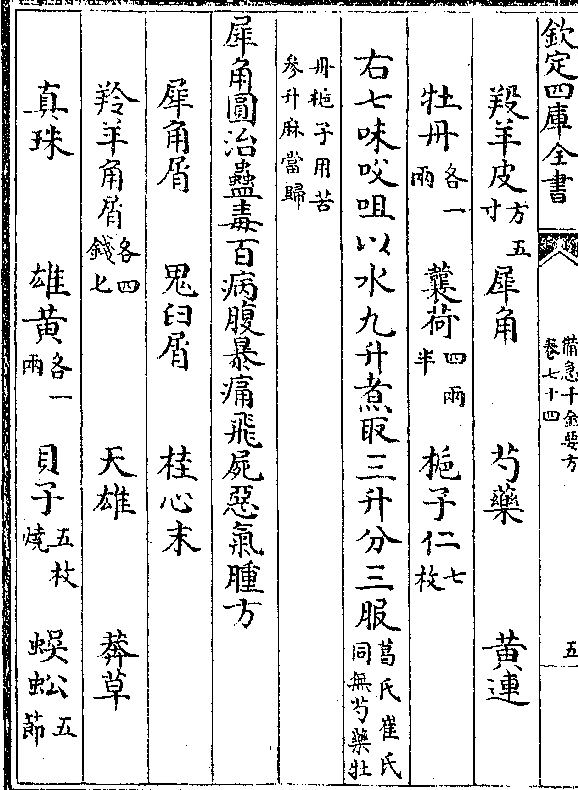 欽定四庫全書
備急千金要方
卷七十四
五
羖羊皮方五寸 犀角 芍藥 黄連
牡丹各一兩 蘘荷四兩半 梔子仁七枚
右七味㕮咀以水九升煮取三升分三服葛氏崔氏同無芍藥牡
丹梔子用苦參升麻當歸
犀角圓治蠱毒百病腹暴痛飛屍惡氣腫方
犀角屑 鬼臼屑 桂心末
羚羊角屑各四錢七 天雄 莽草
真珠 雄黄各一兩 貝子五枚燒 蜈蚣五節